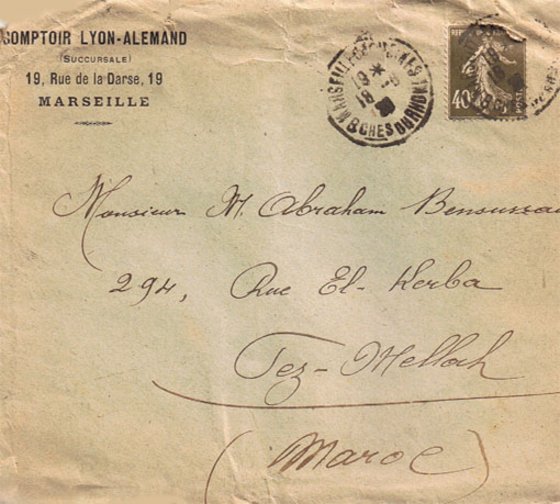 COMPTOIR LYON-ALEMAND
(SUCCURSALE)
19, Rue de la Darse, 19
MARSEILLE
MARSEILLE
BCHES DU RHONE
40
Monsieur M. Abraham Bensussan
294, Rue El-Kerba
Fez-Mellah
(Maroc)